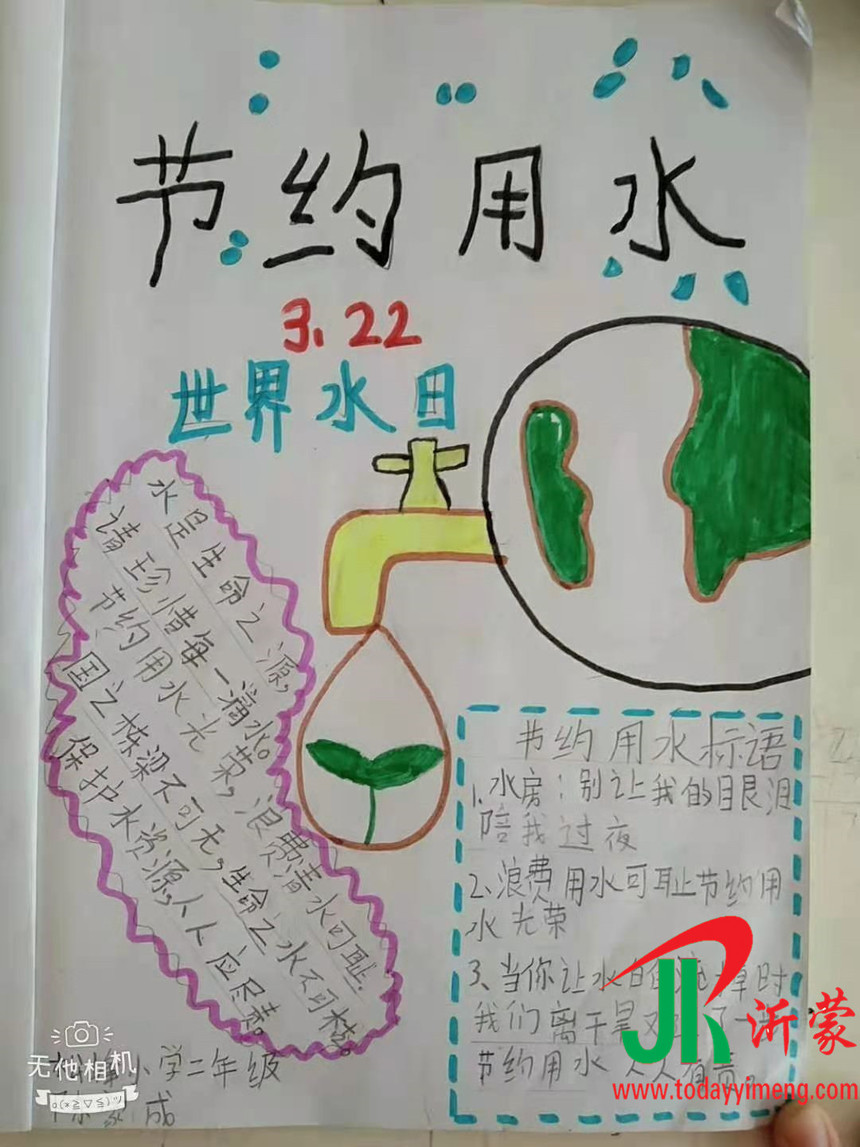 节约用水
3.22
世界水日
水是生命之源,
请珍惜每一滴水。
节约用水光荣,浪费清水可耻.
国之栋梁不可无,生命之水不可枯。
保护水资源,人人应尽责。
节约用水标语
1、水房:别让我的眼泪
陪我过夜
2、浪费用水可耻节约用
水光荣
3、当你让水白白流掉时
我们离干旱又了一
节约用水 人人有责。
小学二年级
成
无他相机
JR 沂蒙
www.todayyimeng.com